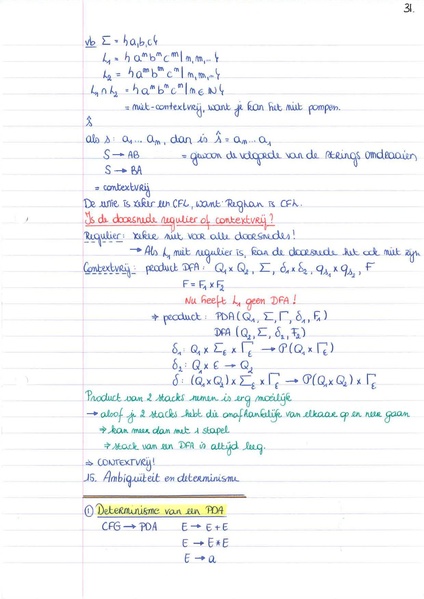 31.
vb Σ = {a,b,c}
L₁ = {aᵐbᵐcⁿ | n,m,...}
L₂ = {aᵐbⁿcⁿ | n,m,...}
L₁ ∩ L₂ = {aᵐbᵐcᵐ | m ∈ ℕ}
= niet-contextvrij, want je kan het niet pompen.
ŝ
als s: a₁...aₙ, dan is ŝ = aₙ...a₁
S → AB = gewoon de volgorde van de strings omdraaien
S → BA
= contextvrij
De unie is zeker een CFL, want RegLan is CFL.
Is de doorsnede regulier of contextvrij?
Regulier: zeker niet voor alle doorsnedes!
→ Als L₁ niet regulier is, kan de doorsnede het ook niet zijn
Contextvrij: product DFA: Q₁ x Q₂, Σ, δ₁ x δ₂, qₛ₁ x qₛ₂, F
F = F₁ x F₂
Nu heeft L₁ geen DFA!
⇒ product: PDA (Q₁, Σ, Γ, δ₁, F₁)
DFA (Q₂, Σ, δ₂, F₂)
δ₁: Q₁ x Σε x Γε → P(Q₁ x Γε)
δ₂: Q₂ x Σ → Q₂
δ: (Q₁ x Q₂) x Σε x Γε → P(Q₁ x Q₂) x Γε
Product van 2 stacks nemen is erg moeilijk
→ alsof je 2 stacks hebt die onafhankelijk van elkaar op en neer gaan
⇒ kan meer dan met 1 stapel
⇒ stack van een DFA is altijd leeg.
⇒ CONTEXTVRIJ!
15. Ambiguïteit en determinisme
① Determinisme van een PDA
CFG → PDA E → E + E
E → E * E
E → a